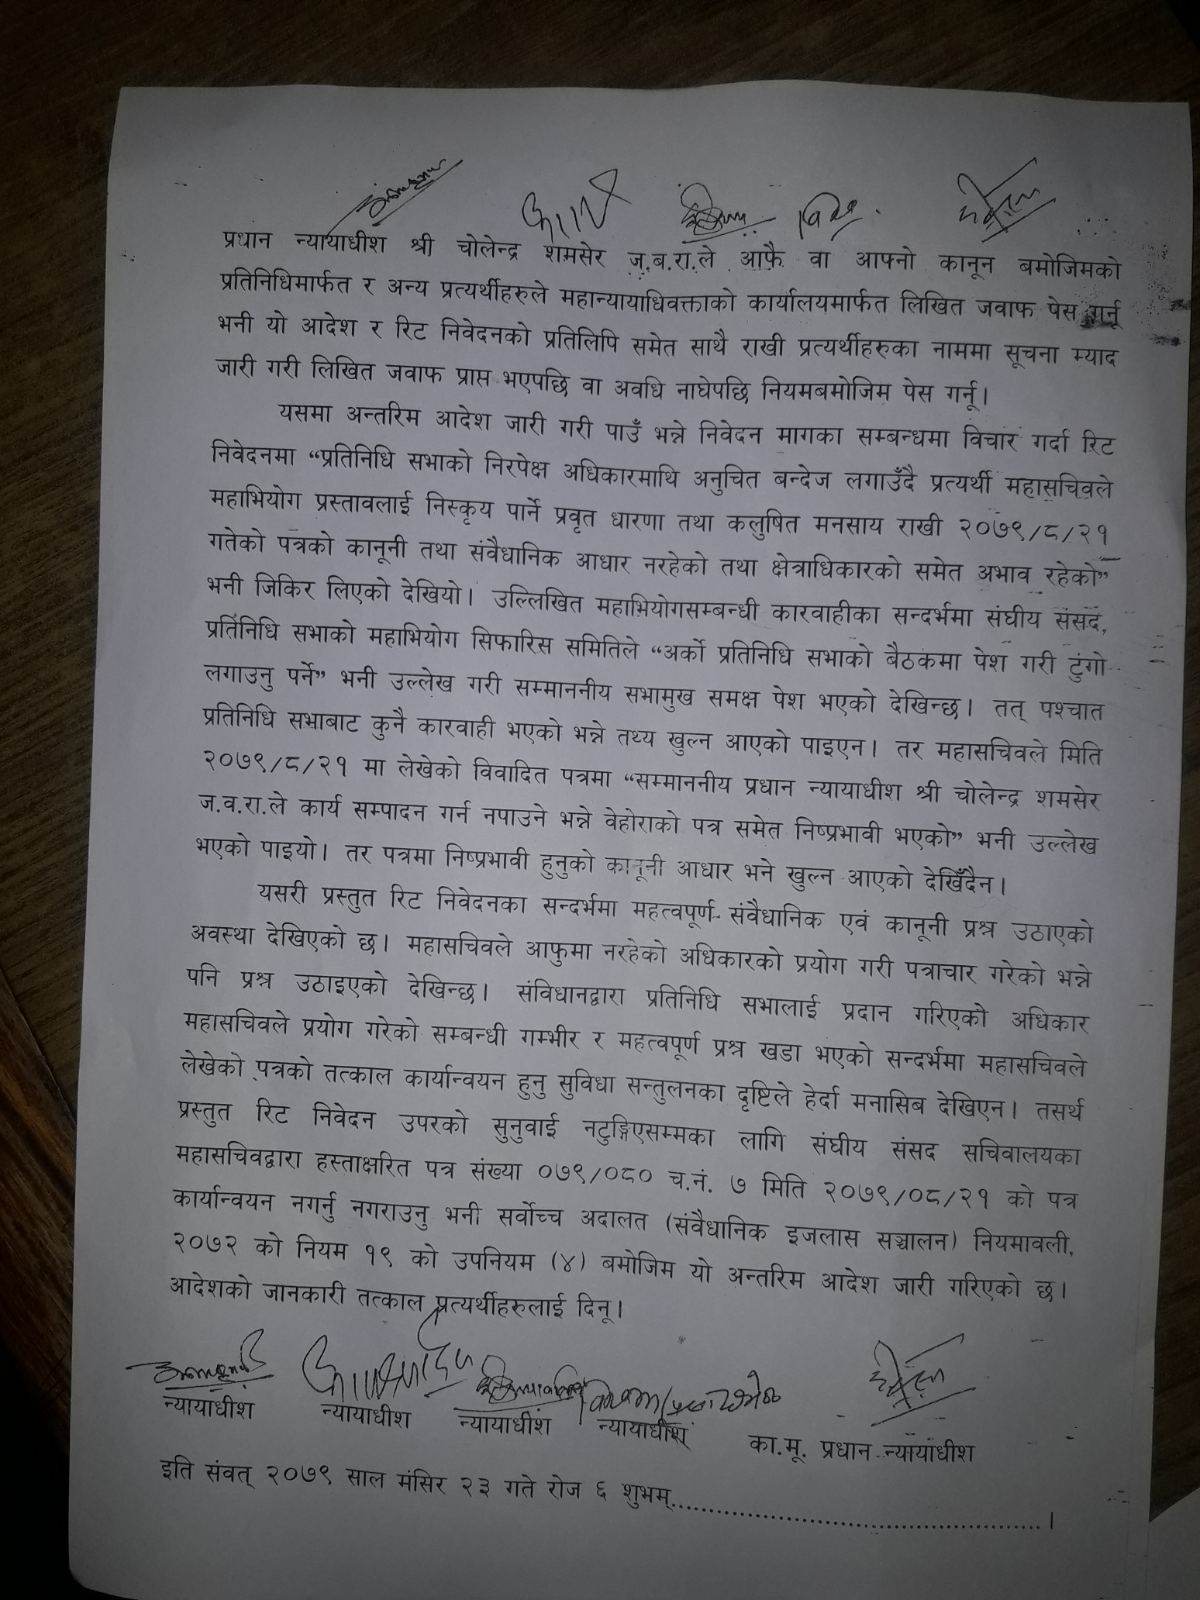 प्रधान न्यायाधीश श्री चोलेन्द्र शमसेर ज.ब.रा.ले आफै वा आफ्नो कानून बमोजिमको
प्रतिनिधिमार्फत र अन्य प्रत्यर्थीहरुले महान्यायाधिवक्ताको कार्यालयमार्फत लिखित जवाफ पेस गर्नू
भनी यो आदेश र रिट निवेदनको प्रतिलिपि समेत साथै राखी प्रत्यर्थीहरुका नाममा सूचना म्याद
जारी गरी लिखित जवाफ प्राप्त भएपछि वा अवधि नाघेपछि नियमबमोजिम पेस गर्नू।
यसमा अन्तरिम आदेश जारी गरी पाउँ भन्ने निवेदन मागका सम्बन्धमा विचार गर्दा रिट
निवेदनमा “प्रतिनिधि सभाको निरपेक्ष अधिकारमाथि अनुचित बन्देज लगाउँदै प्रत्यर्थी महासचिवले
महाभियोग प्रस्तावलाई निस्कृय पार्ने प्रवृत धारणा तथा कलुषित मनसाय राखी २०७९/८/२१
गतेको पत्रको कानूनी तथा संवैधानिक आधार नरहेको तथा क्षेत्राधिकारको समेत अभाव रहेको”
भनी जिकिर लिएको देखियो। उल्लिखित महाभियोगसम्बन्धी कारवाहीका सन्दर्भमा संघीय संसद,
प्रतिनिधि सभाको महाभियोग सिफारिस समितिले “अर्को प्रतिनिधि सभाको बैठकमा पेश गरी टुंगो
लगाउनु पर्ने” भनी उल्लेख गरी सम्माननीय सभामुख समक्ष पेश भएको देखिन्छ। तत् पश्चात
प्रतिनिधि सभाबाट कुनै कारवाही भएको भन्ने तथ्य खुल्न आएको पाइएन। तर महासचिवले मिति
२०७९/८/२१ मा लेखेको विवादित पत्रमा “सम्माननीय प्रधान न्यायाधीश श्री चोलेन्द्र शमसेर
ज.व.रा.ले कार्य सम्पादन गर्न नपाउने भन्ने वेहोराको पत्र समेत निष्प्रभावी भएको” भनी उल्लेख
भएको पाइयो। तर पत्रमा निष्प्रभावी हुनुको कानूनी आधार भने खुल्न आएको देखिँदैन।
यसरी प्रस्तुत रिट निवेदनका सन्दर्भमा महत्वपूर्ण संवैधानिक एवं कानूनी प्रश्न उठाएको
अवस्था देखिएको छ। महासचिवले आफुमा नरहेको अधिकारको प्रयोग गरी पत्राचार गरेको भन्ने
पनि प्रश्न उठाइएको देखिन्छ। संविधानद्वारा प्रतिनिधि सभालाई प्रदान गरिएको अधिकार
महासचिवले प्रयोग गरेको सम्बन्धी गम्भीर र महत्वपूर्ण प्रश्न खडा भएको सन्दर्भमा महासचिवले
लेखेको पत्रको तत्काल कार्यान्वयन हुनु सुविधा सन्तुलनका दृष्टिले हेर्दा मनासिब देखिएन। तसर्थ
प्रस्तुत रिट निवेदन उपरको सुनुवाई नटुङ्गिएसम्मका लागि संघीय संसद सचिवालयका
महासचिवद्वारा हस्ताक्षरित पत्र संख्या ०७९/०८० च.नं. ७ मिति २०७९/०८/२१ को पत्र
कार्यान्वयन नगर्नु नगराउनु भनी सर्वोच्च अदालत (संवैधानिक इजलास सञ्चालन) नियमावली,
२०७२ को नियम १९ को उपनियम (४) बमोजिम यो अन्तरिम आदेश जारी गरिएको छ।
आदेशको जानकारी तत्काल प्रत्यर्थीहरुलाई दिनू।
न्यायाधीश न्यायाधीश न्यायाधीश न्यायाधीश का.मू. प्रधान न्यायाधीश
इति संवत् २०७९ साल मंसिर २३ गते रोज ६ शुभम्..........................................।